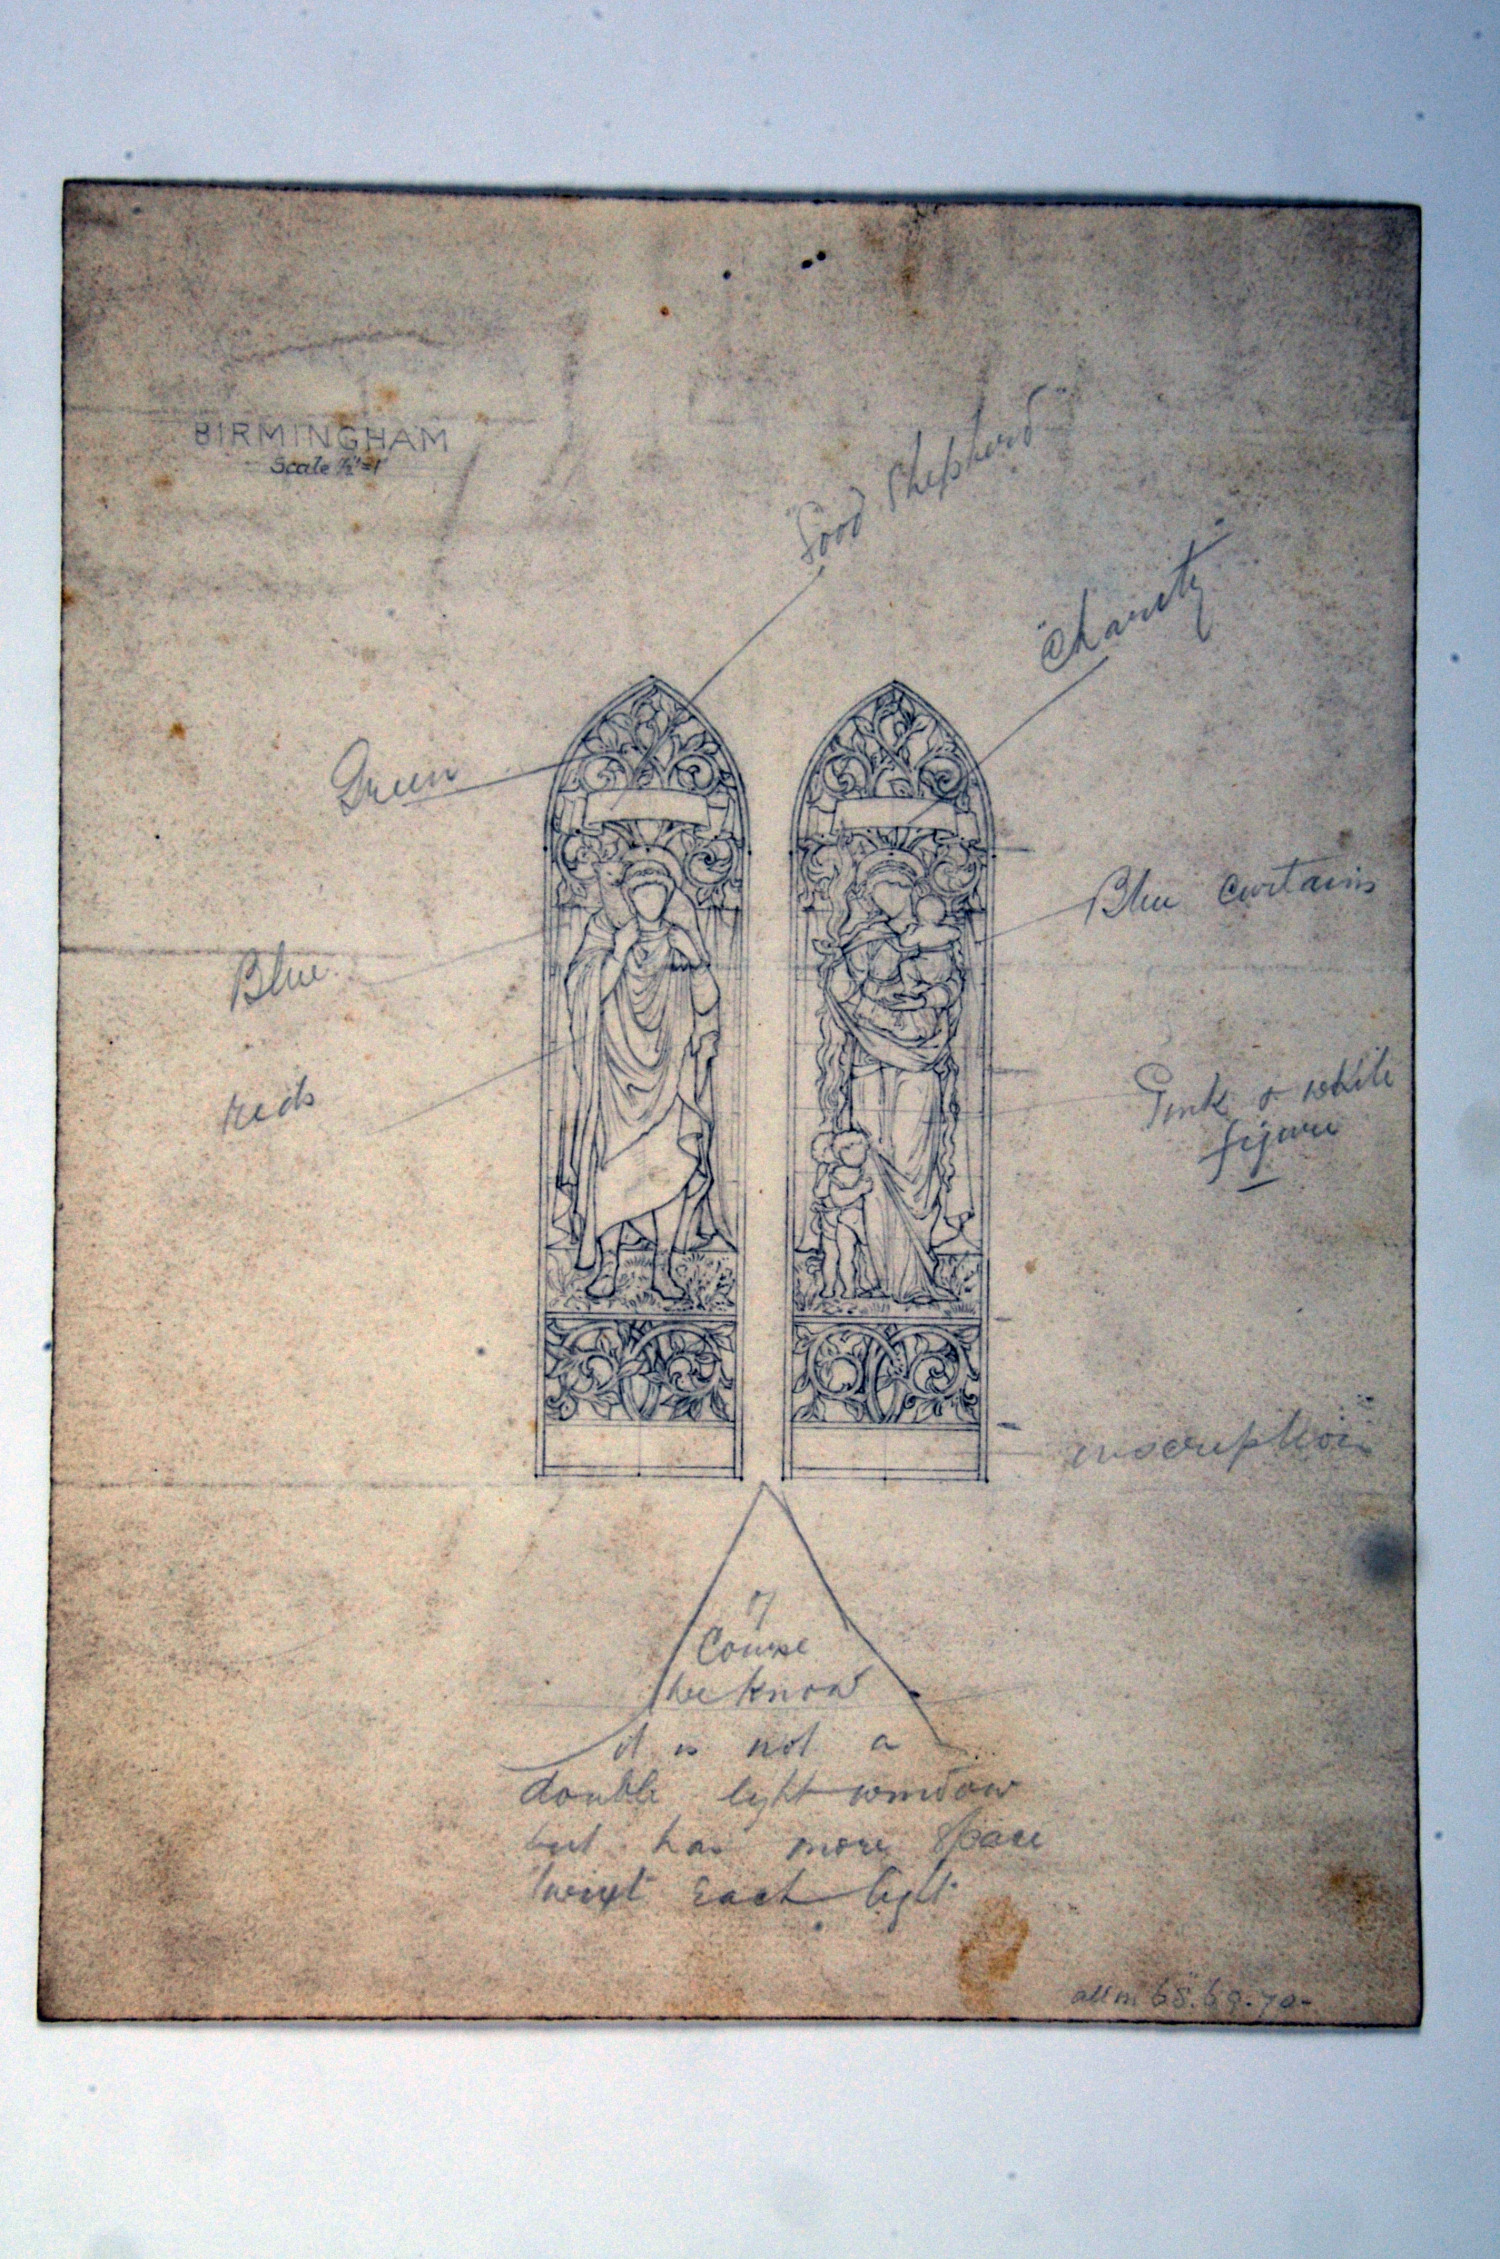 BIRMINGHAM
Scale ½"=1'
"Good Shepherd"
"Charity"
Green
Blue curtains
Blue
Pink & white
figure
reds
inscription
Of
Course
we know
it is not a
double light window
but has more space
twixt each light
68.69.70-